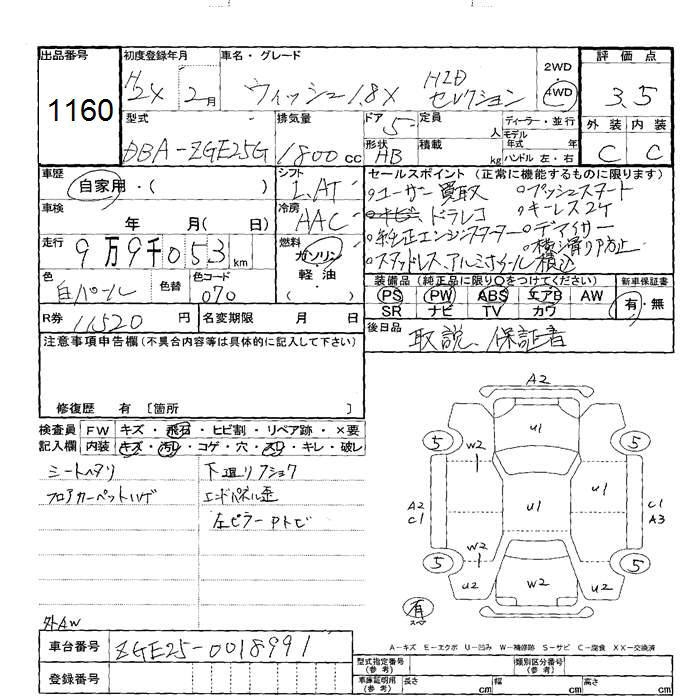 出品番号 初度登録年月 車名・グレード 2WD 評価点
1160 H24 2月 ウィッシュ1.8X HID セレクション 4WD 3.5
型式 排気量 ドア 5 定員 人 ディーラー・並行 外装 内装
DBA-ZGE25G 1800cc 形状 HB 積載 kg モデル年式 年 ハンドル 左・右 C C
車歴 自家用・( ) シフト LAT セールスポイント (正常に機能するものに限ります)
。ユーザー買取 。プッシュスタート
車検 年 月( 日) 冷房 AAC ドラレコ 。キーレス2ケ
。純正エンジンスターター 。デアイサー
走行 9万9千053km 燃料 ガソリン 軽油 ( ) 。横滑り防止
。スタッドレス、アルミホイール積込
色 白パール 色替 色コード 070 装備品 (純正品に限り○をつけてください) 新車保証書
PS PW ABS エアB AW 有・無
SR ナビ TV カワ
R券 11520円 名変期限 月 日 後日品 取説、保証書
注意事項申告欄(不具合内容等は具体的に記入して下さい)
修復歴 有 [箇所 ]
検査員 FW キズ・飛石・ヒビ割・リペア跡・×要
記入欄 内装 キズ・汚れ・コゲ・穴・スリ・キレ・破レ
シートヘタリ 下廻りフショク
フロアカーペットハゲ エンドパネル歪
左ピラーPトビ
外AW
A2
U1
5 5
W2
A2 C1 U1 U1 C1 A3
W2
5 5
U2 W2 U2
有 スペ
A-キズ E-エクボ U-凹み W-補修跡 S-サビ C-腐食 XX-交換済
車台番号 ZGE25-0018991
型式指定番号(参考) 類別区分番号(参考)
登録番号 車庫証明用(参考) 長さ cm 幅 cm 高さ cm